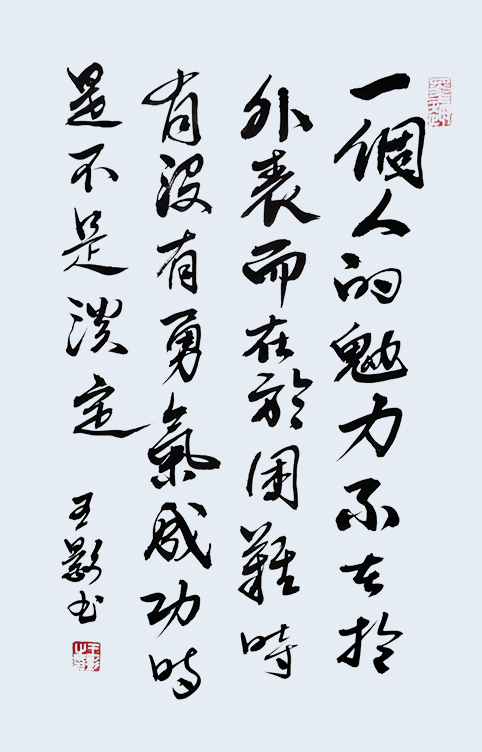 一個人的魅力不在於
外表而在於困難時
有沒有勇氣成功時
是不是淡定
王影书